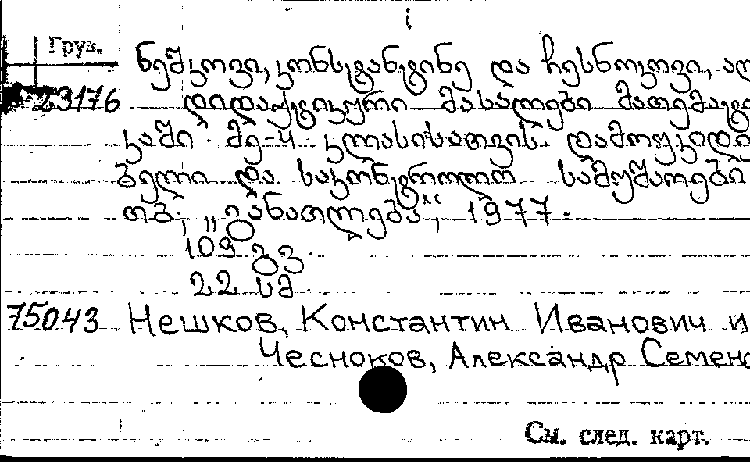 Груз.
ნეშკოვი, კონსტანტინე და ჩესნოკოვი, ალ
23176 დიდაქტიკური მასალები მათემატი
კაში მე-4 კლასისათვის დამოუკიდე
ბელი და საკონტროლო სამუშაოები
თბ., „განათლება“, 1977.
109 გვ.
22 სმ
75043 Нешков, Константин Иванович и
Чесноков, Александр Семено
См. след. карт.